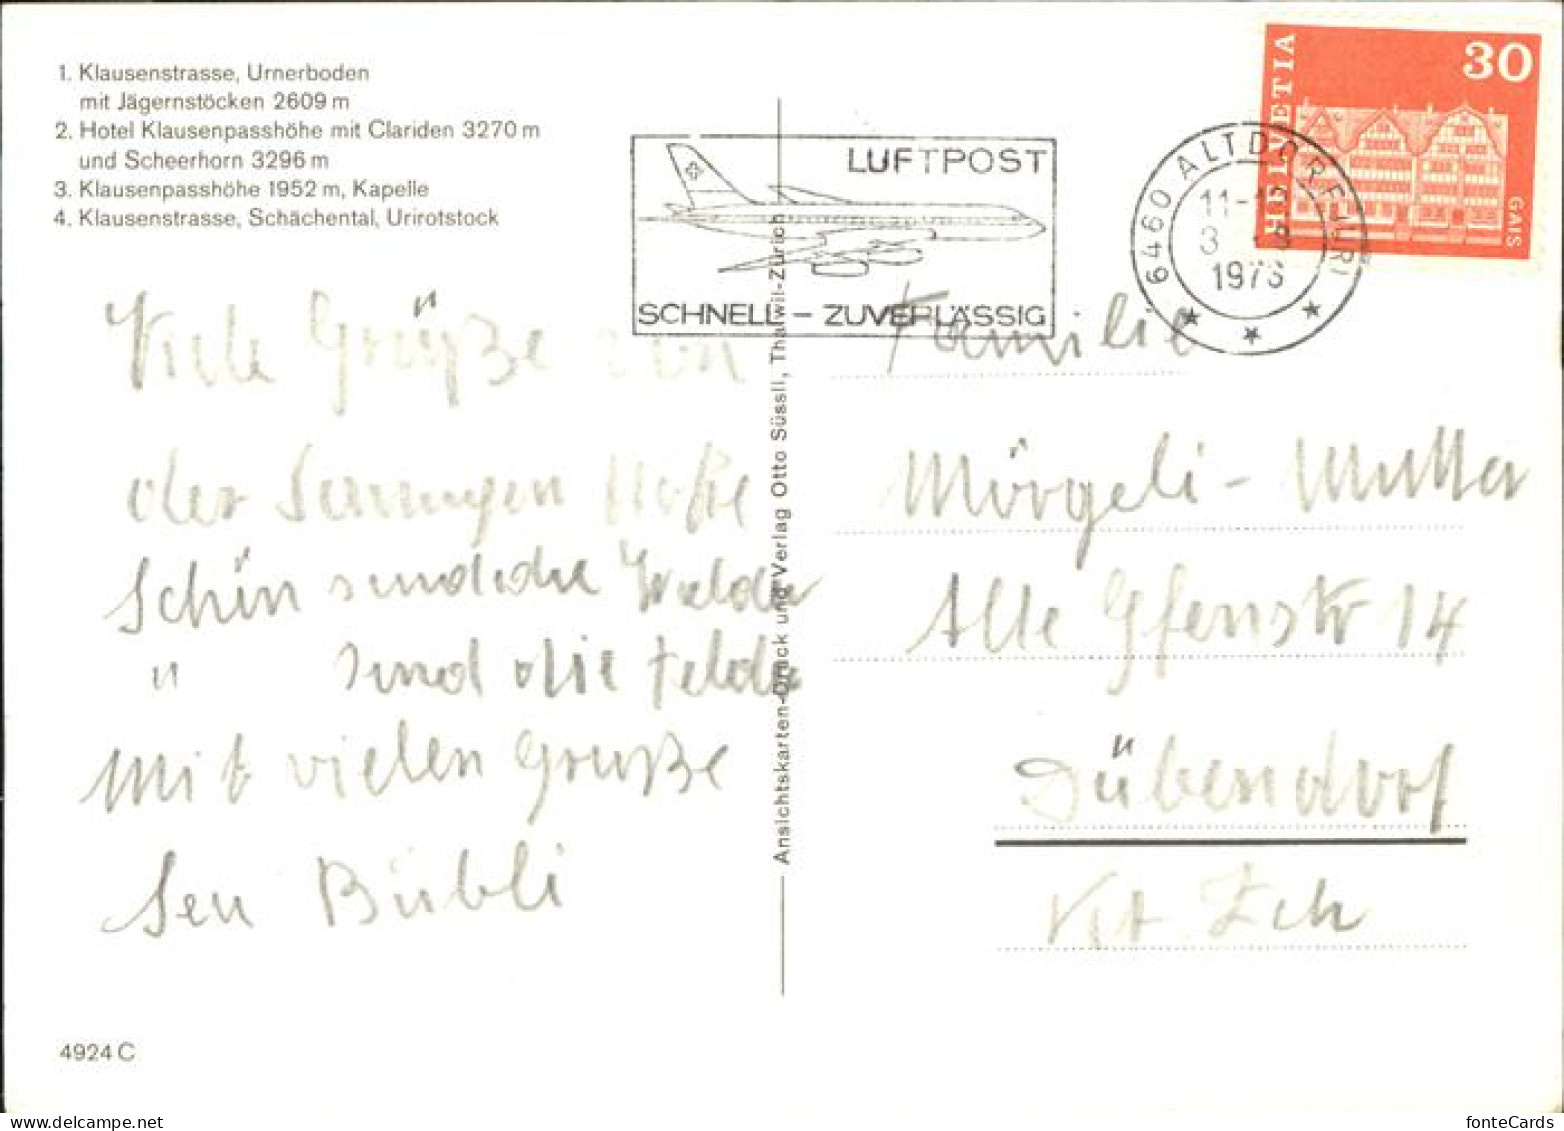 1. Klausenstrasse, Urnerboden
mit Jägernstöcken 2609 m
2. Hotel Klausenpasshöhe mit Clariden 3270 m
und Scheerhorn 3296 m
3. Klausenpasshöhe 1952 m, Kapelle
4. Klausenstrasse, Schächental, Urirotstock
LUFTPOST
SCHNELL – ZUVERLÄSSIG
6460 ALTDORF URI
11-12
1973
HELVETIA
30
GAIS
Viele Grüße von
der
Schön send die Walder
" send die Felder
Mit vielen Gruße
Sen Bübli
Ansichtskarten-Druck und Verlag Otto Süssli, Thalwil-Zürich
Familie
Mörgeli -
Alte Gfenstr 14
Dübendorf
Kt. Zch
4924 C
fonteCards